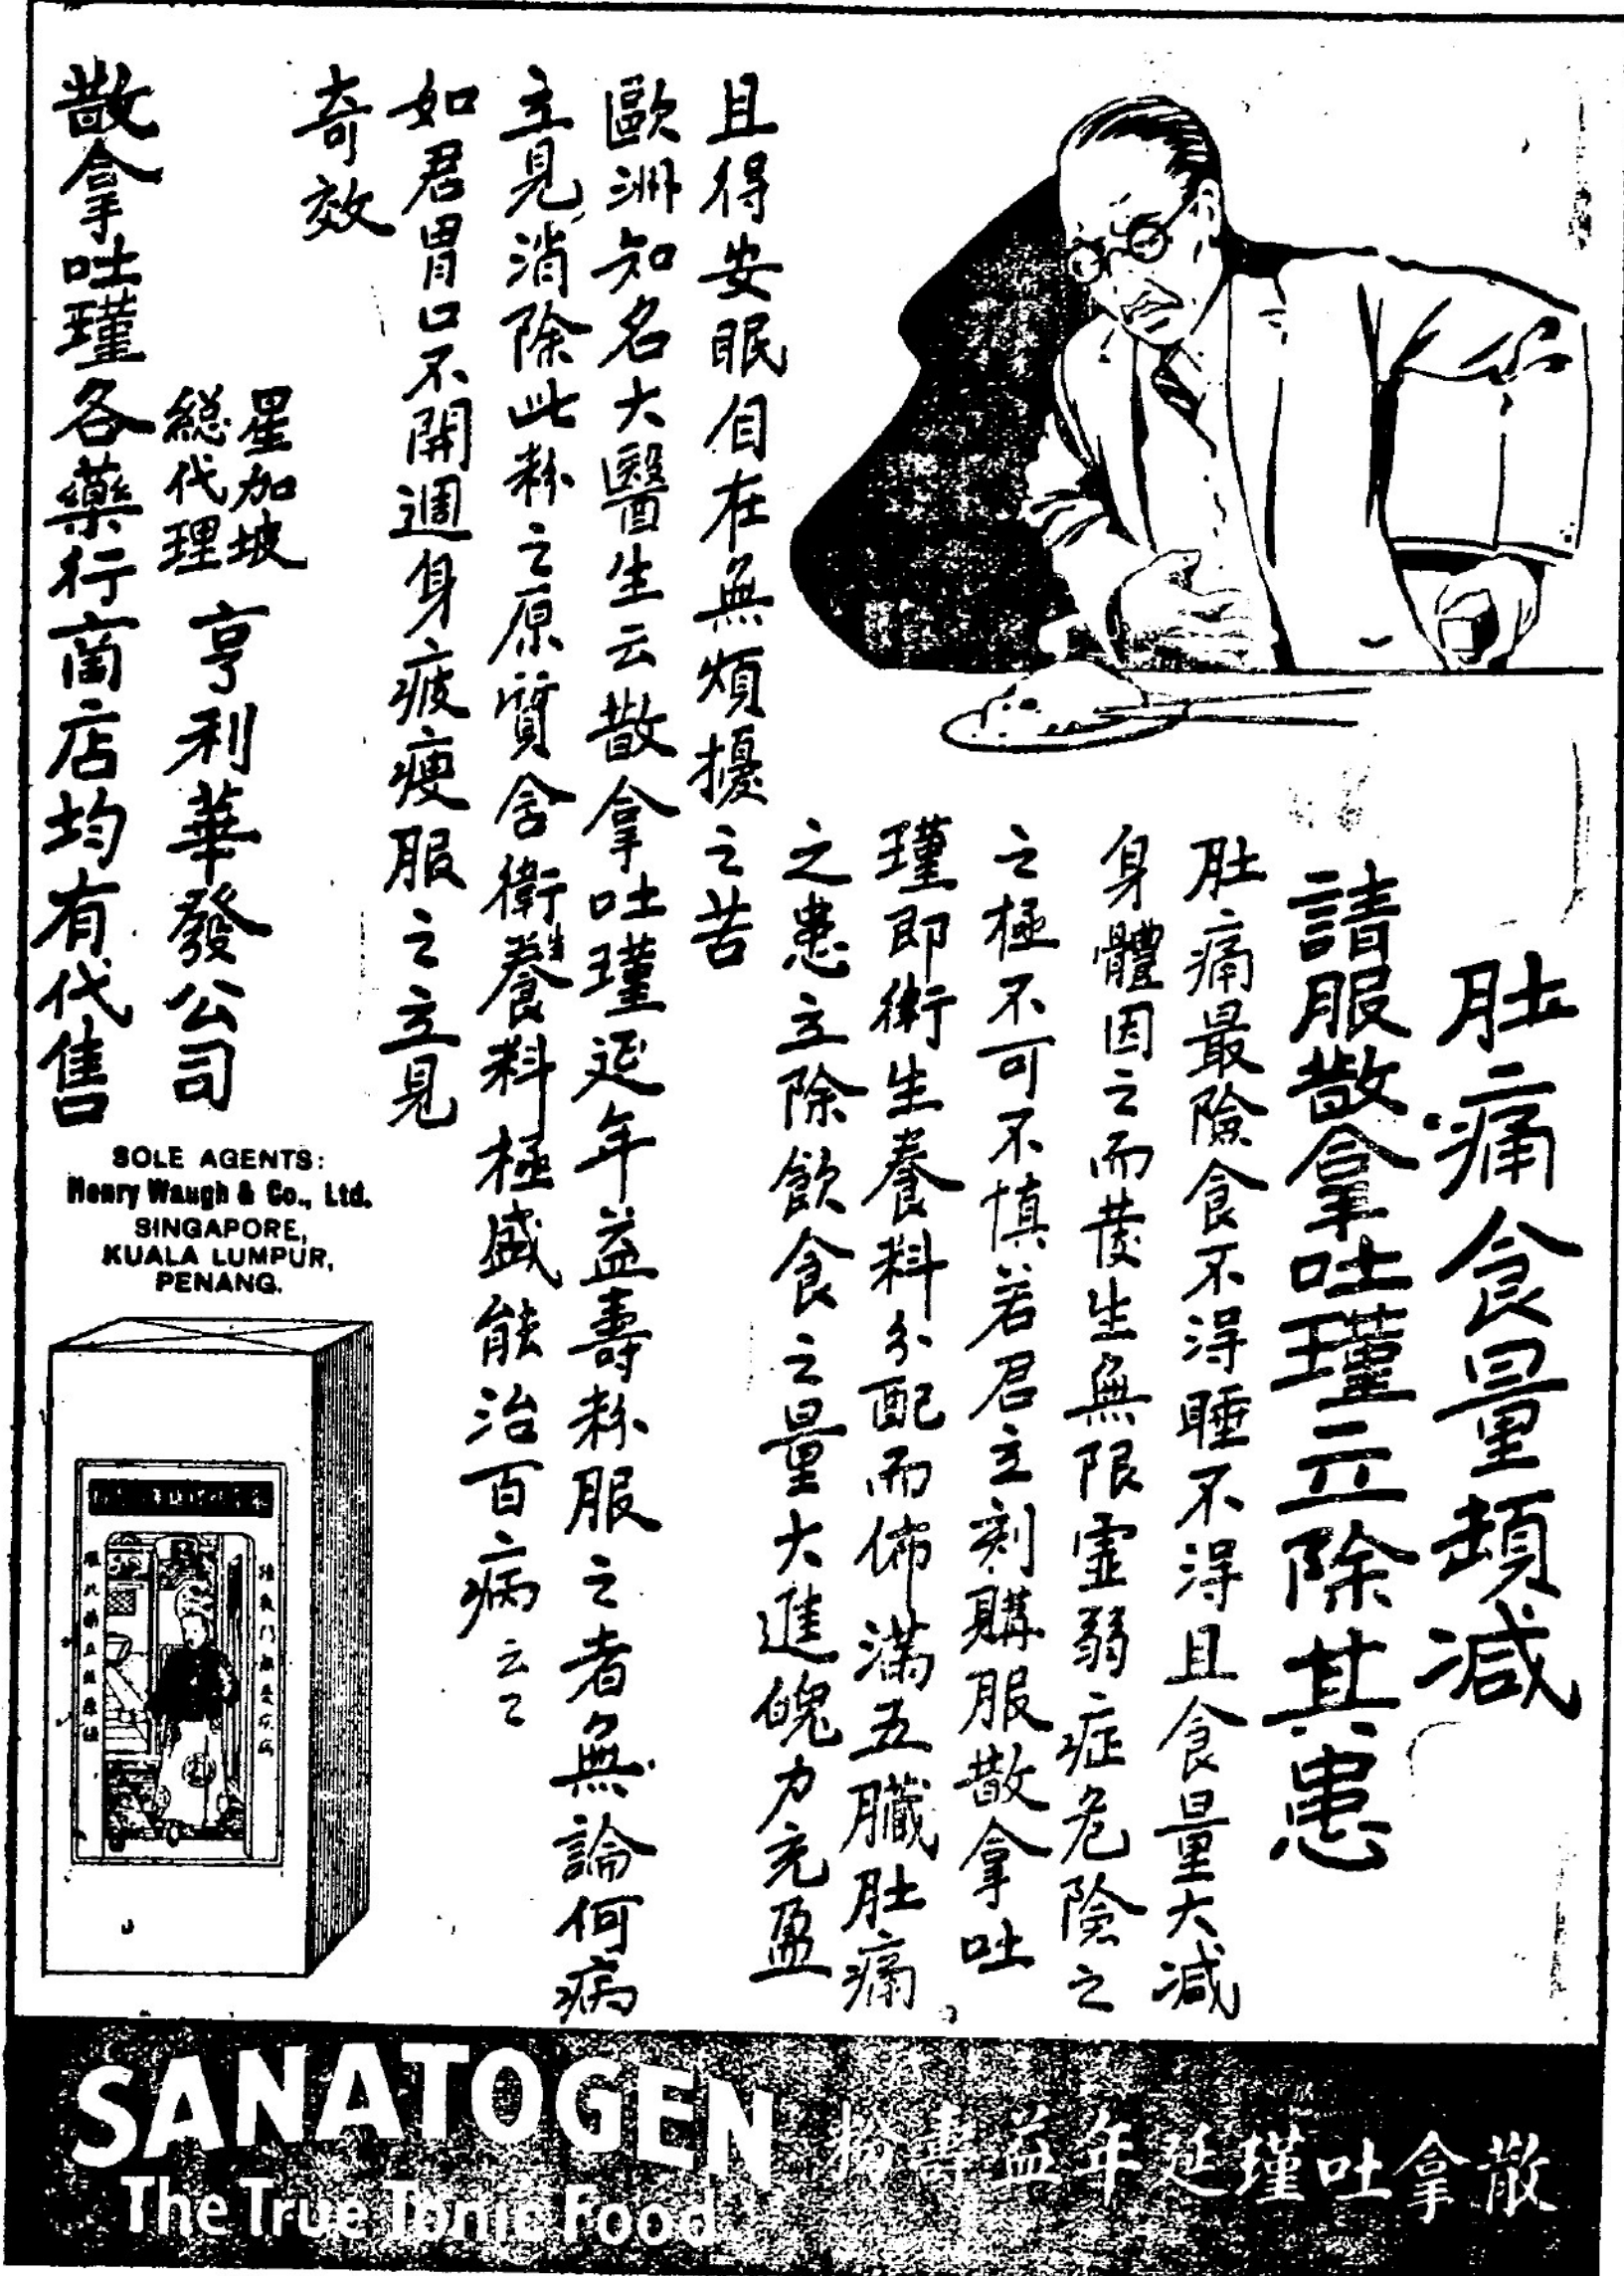 肚痛食量頓減
請服散拿吐瑾立除其患
肚痛最險食不得睡不得且食量大減
身體因之而發生無限虛弱症危險之
之極不可不慎若君立刻購服散拿吐
瑾即衛生養料分配而佈滿五臟肚痛
之患立除飲食之量大進魄力充盈
且得安眠自在無煩擾之苦
歐洲知名大醫生云散拿吐瑾延年益壽粉服之者無論何病
立見消除此粉之原質含衛生養料極盛能治百病云云
如君胃口不開週身疲瘦服之立見
奇效
星加坡
總代理
亨利華發公司
散拿吐瑾各藥行商店均有代售
SOLE AGENTS:
Henry Waugh & Co., Ltd.
SINGAPORE,
KUALA LUMPUR,
PENANG.
SANATOGEN
The True Tonic Food
散拿吐瑾延年益壽粉